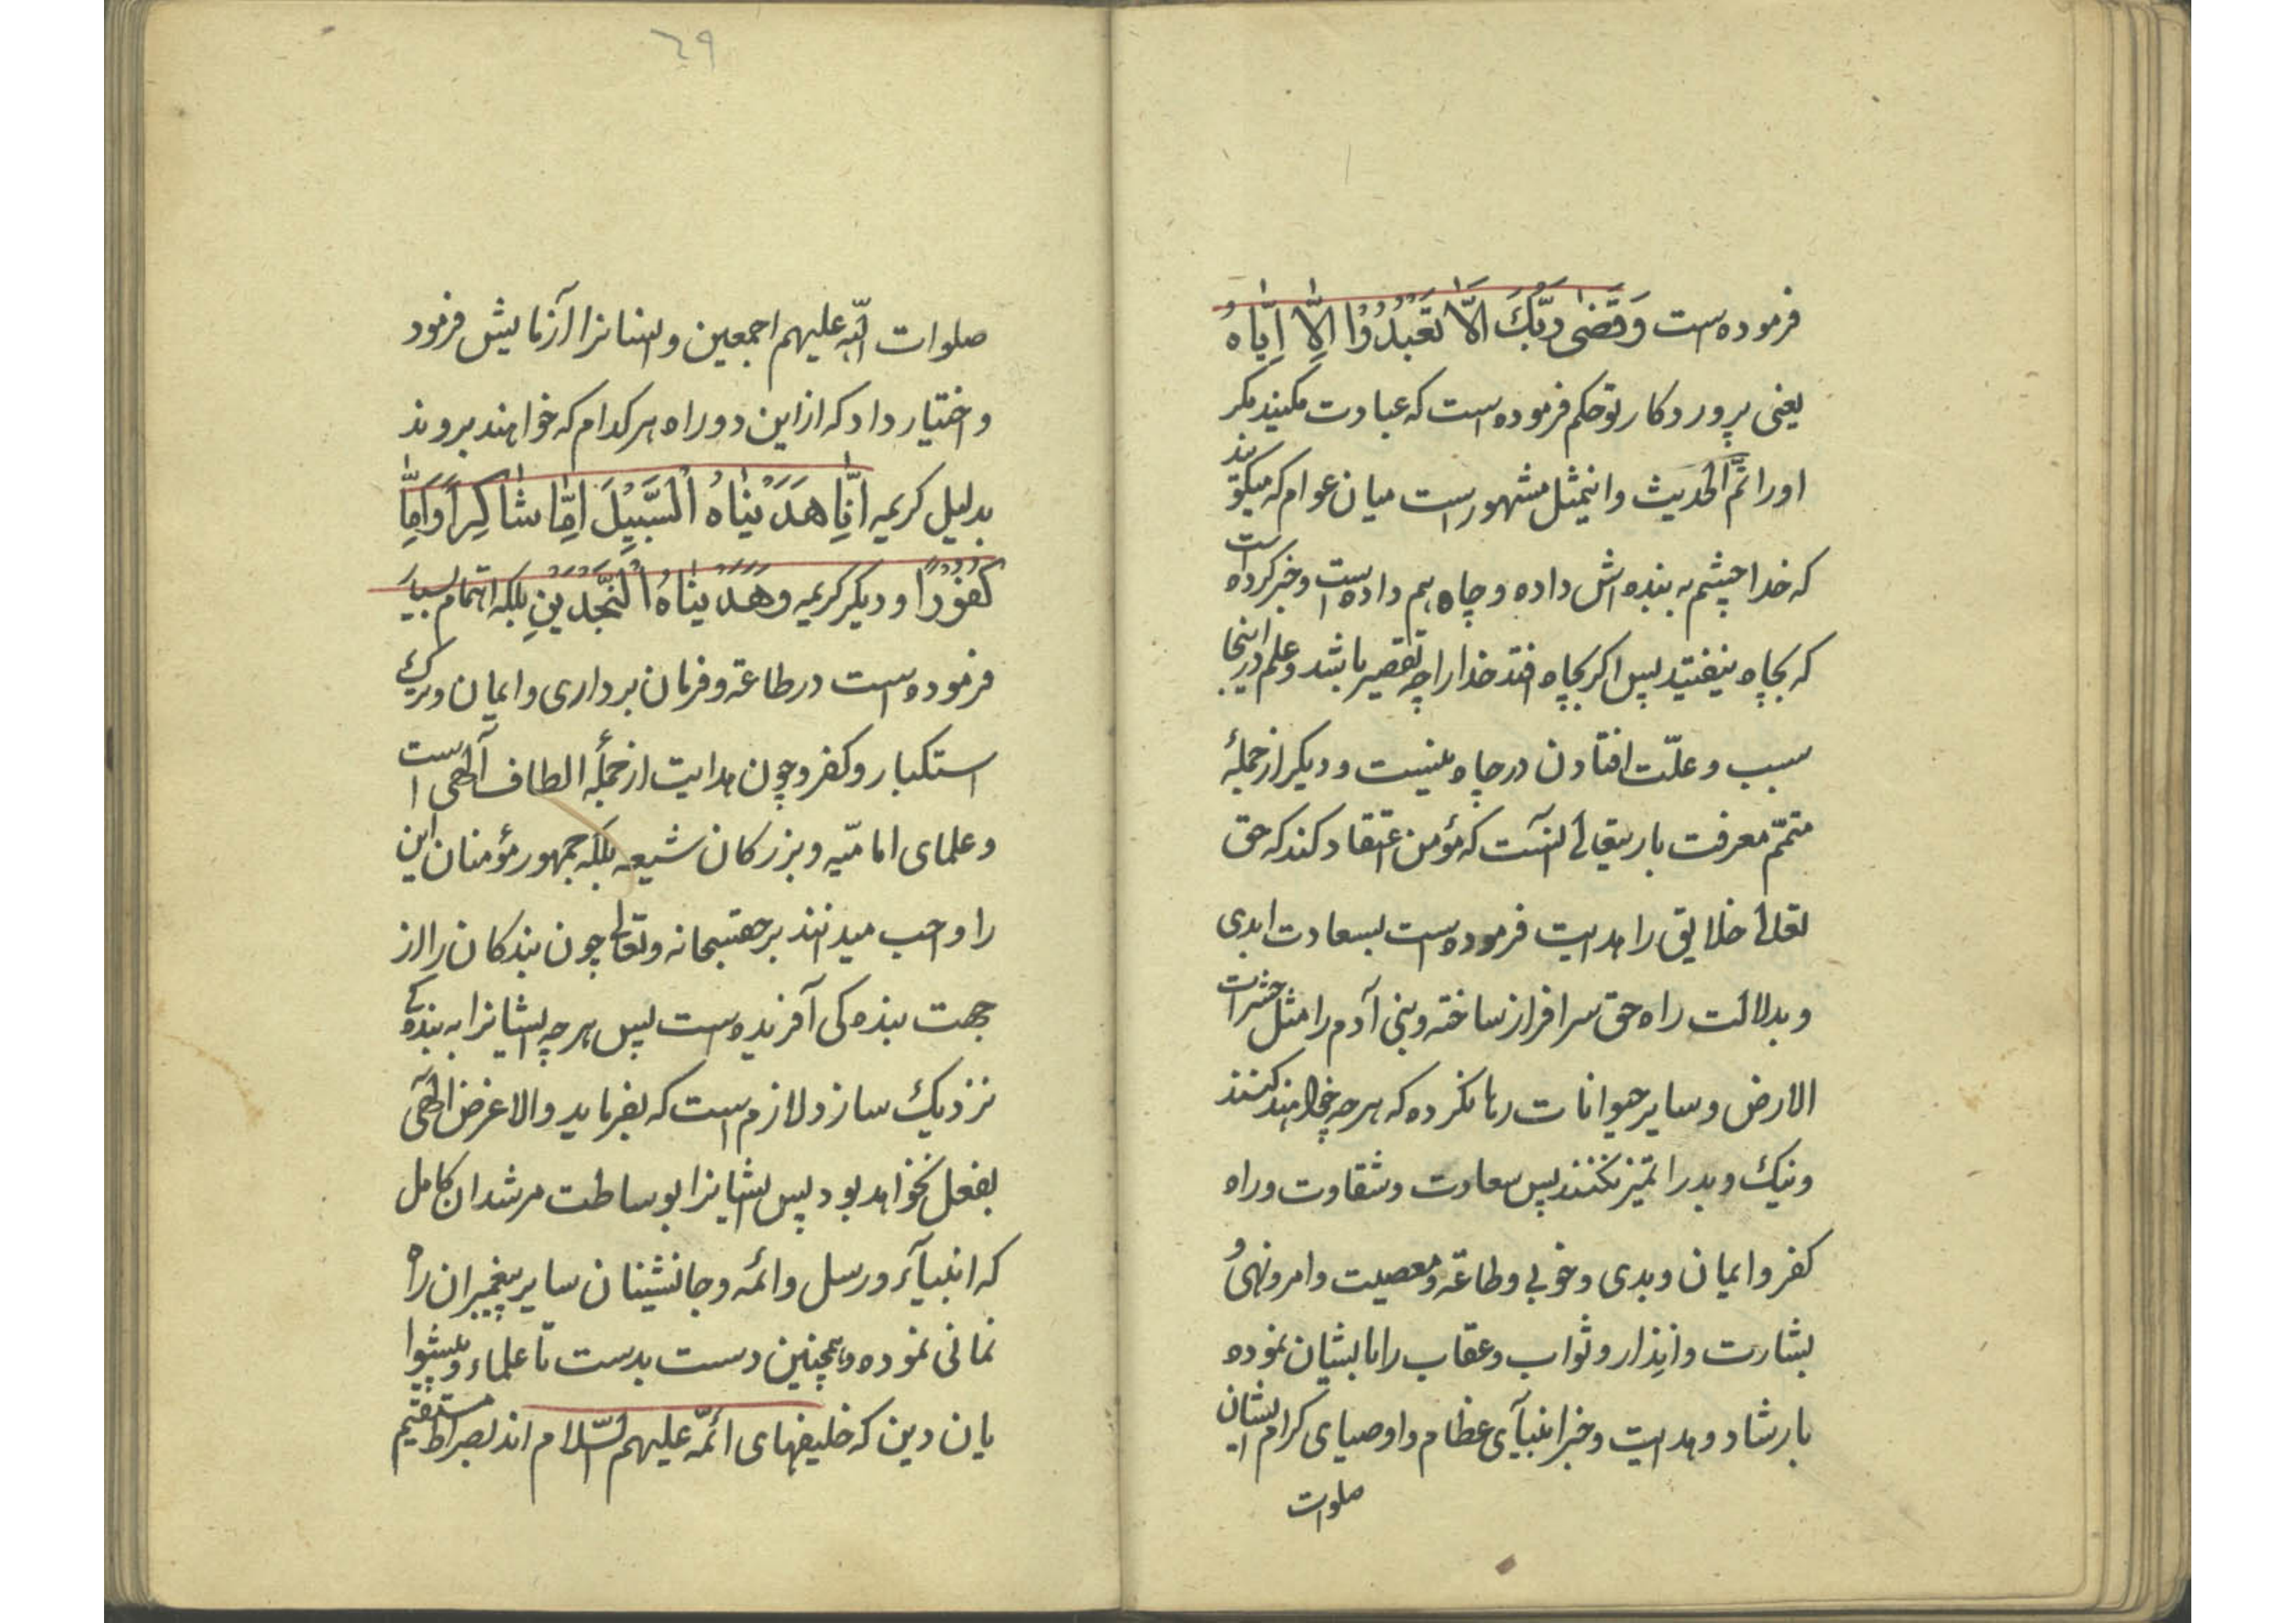 فرموده است وَقَضٰی رَبُّكَ اَلّٰا تَعْبُدُوُا اِلّٰا اِیّٰاهُ
یعنی پروردکار تو حکم فرموده است که عبادت مکنید مکر
او را تَمَّ الحدیث و اینمثل مشهور است میان عوام که میکویند
که خدا چشم به بنده اش داده و چاه هم داده است و خبر کرده است
که بچاه نیفتید پس اکر بچاه افتد خدا را چه تقصیر باشد و علم در اینجا
سبب و علّت افتادن در چاه نیست و دیکر از جملۀ
متمّم معرفت باریتعالی آنست که مؤمن اعتقاد کند که حق
تعالی خلایق را هدایت فرموده است بسعادت ابدی
و بدلالت راه حق سرافراز ساخته و بنی آدم را مثل حشرات
الارض و سایر حیوانات رها نکرده که هر چه خواهند کنند
و نیك و بد را تمیز نکنند پس سعادت و شقاوت و راه
کفر و ایمان و بدی و خوبی و طاعة و معصیت و امر و نهی و
بشارت و انذار و ثواب و عقاب را بایشان نموده
بارشاد و هدایت و خبر انبیآی عظام و اوصیای کرام ایشان
صلوات
٦٩
صلوات اللّه علیهم اجمعین و ایشانرا آزمایش فرمود
و اختیار داد که از این دو راه هر کدام که خواهند بروند
بدلیل کریمه اِنّٰا هَدَیْنٰاهُ اْلسَّبیٖلَ اِمّٰا شٰاکِراً وَاِمّٰا
کَفُوْرًا و دیکر کریمه و هَدَیْنٰاهُ اْلنَّجْدَیْنِ بلکه اهتمام بسیار
فرموده است در طاعة و فرمان برداری و ایمان و ترك
استکبار و کفر و چون هدایت از جملۀ الطاف آلهی است
و علمای امامیّه و بزرکان شیعه بلکه جمهور مؤمنان این
را واجب میدانند بر حقسبحانه و تعالی چون بندکان را از
جهت بنده کی آفریده است پس هر چه ایشانرا به بنده کی
نزدیك سازد لازم است که بفرماید والا غرض الهی
بفعل نخواهد بود پس ایشانرا بوساطت مرشدان کامل
که انبیآء و رسل و ائمه و جانشینان سایر پیغمبران راه
نمائی نموده و همچنین دست بدست تا علماء و پیشوا
یان دین که خلیفهای ائمّه علیهم السّلام اند بصراط مستقیم